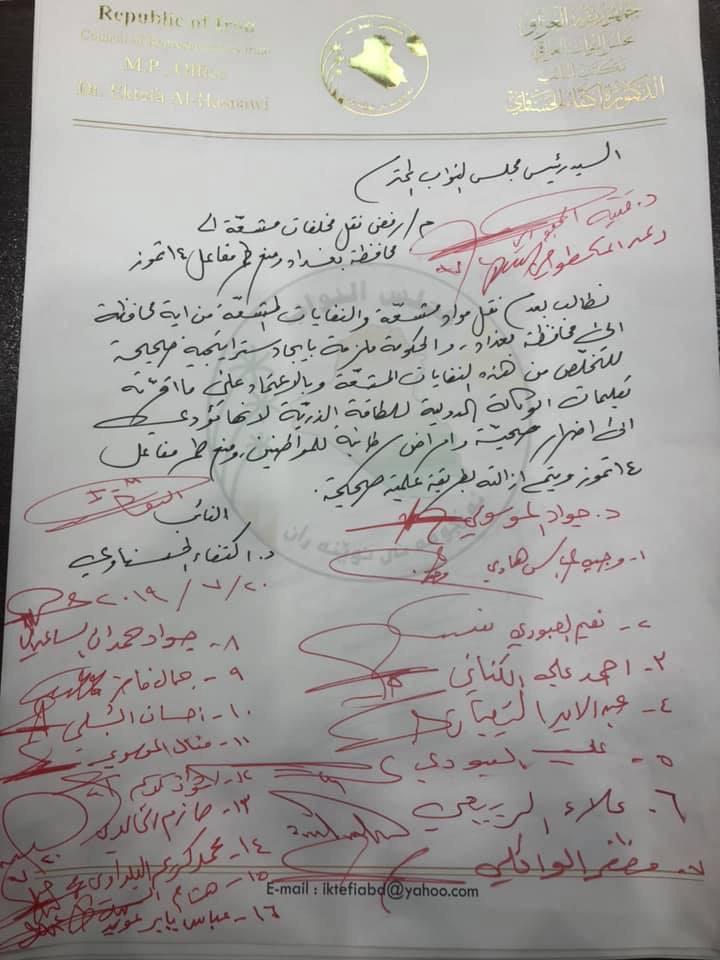 Republic of Iraq
Council of Representatives Iraq
M.P. Office
Dr. Ektefa Al-Hasnawi
جمهورية العراق
مجلس النواب العراقي
مكتب النائب
الدكتورة اكتفاء الحسناوي
السيد رئيس مجلس النواب المحترم
م/ رفض نقل مخلفات مشعة الى
محافظة بغداد ومنع طمر مفاعل ١٤ تموز
د. قتيبة الجبوري
نطالب بعدم نقل مواد مشعة والنفايات المشعة من اية محافظة
الى محافظة بغداد، والحكومة ملزمة بايجاد ستراتيجية صحيحة
للتخلص من هذه النفايات المشعة وبالاعتماد على ما اقرته
تعليمات الوكالة الدولية للطاقة الذرية لانها تؤدي
الى اضرار صحية وامراض سرطانية للمواطنين، ومنع طمر مفاعل
١٤ تموز ويتم ازالته بطريقة علمية صحيحة.
النائب
د. اكتفاء الحسناوي
٢٠١٩/٧/٢٠
د. جواد الموسوي
١- وجيه عباس هادي
٢- نعيم العبودي
٣- احمد علي الكناني
٤- عبد الامير
٥-
٦- علاء الربيعي
٧- مضر الوائلي
٨- جواد حمدان الساعدي
٩- جمال فاخر
١٠- احسان
١١- منال الموسوي
١٢-
١٣- حازم الخالدي
١٤- محمد كريم البلداوي
١٥- هشام
١٦- عباس يابر
مجلس النواب
E-mail : iktefiabd@yahoo.com